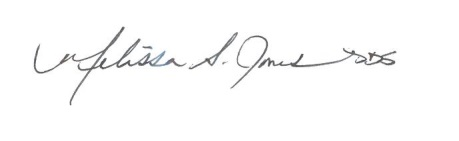 Melissa S. Jones DDS